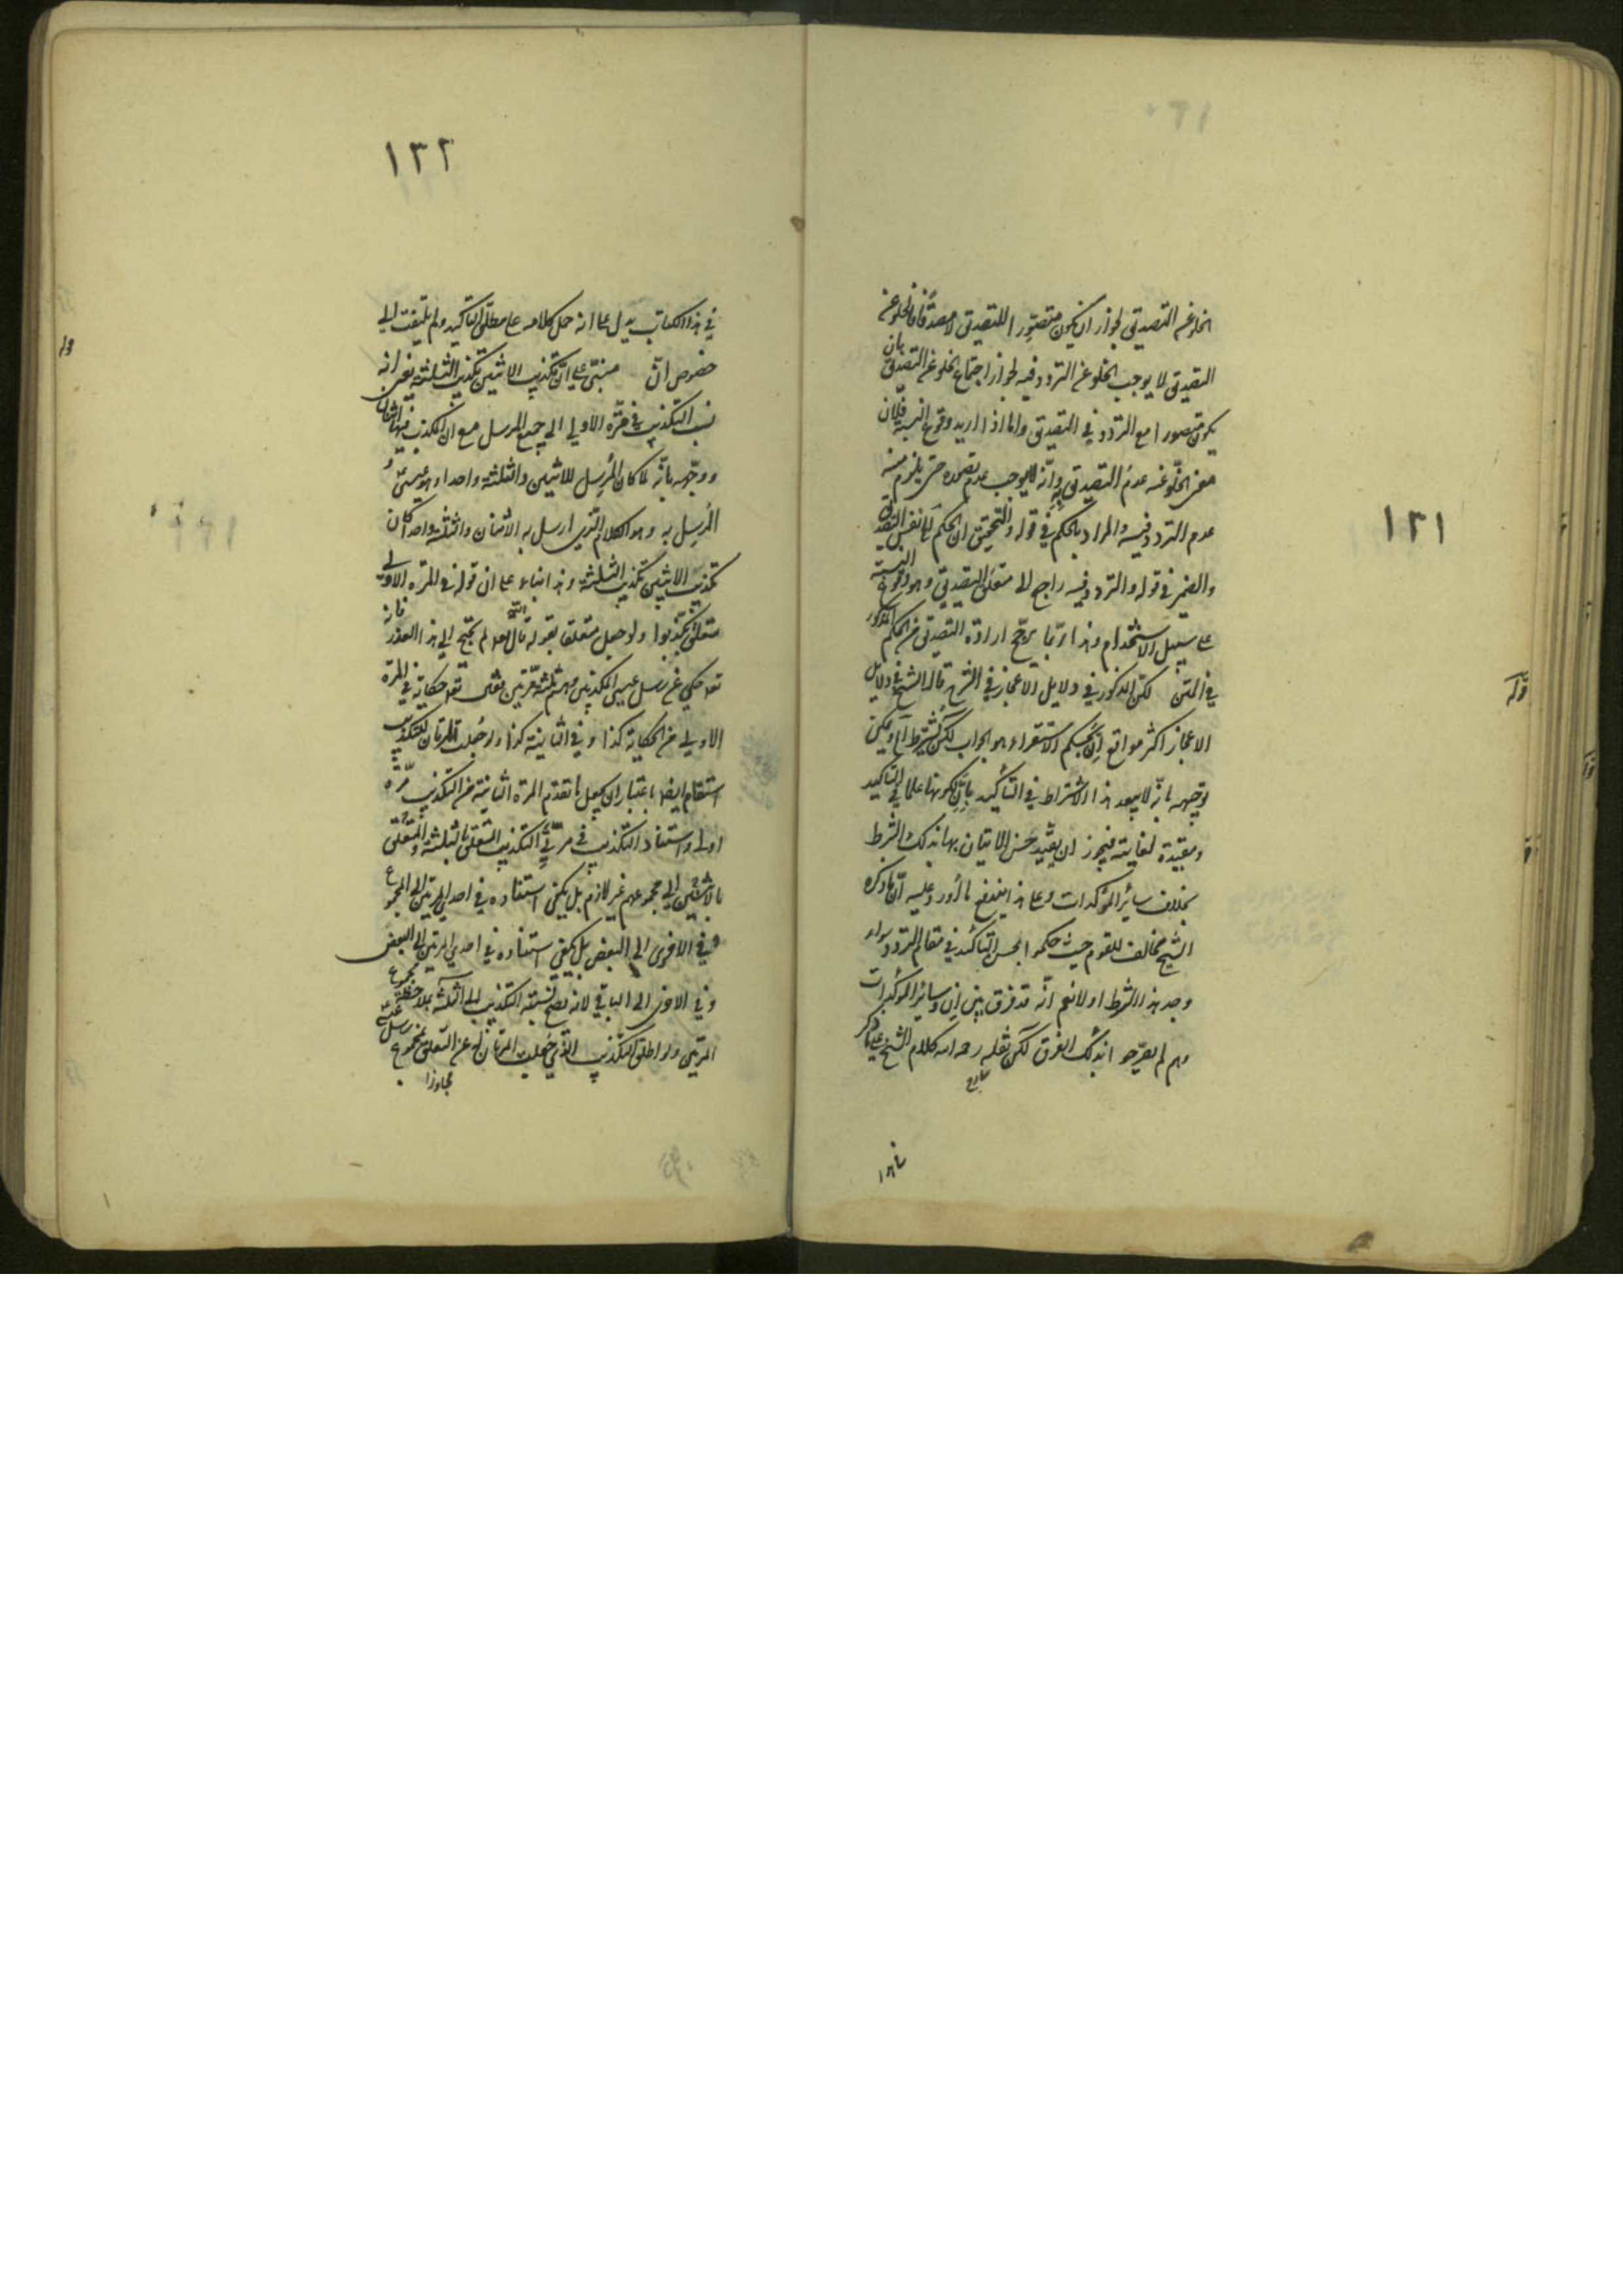 ١٢١
الخلو عن التصديق لجواز ان يكون متصورا للتصديق لا مصدقا فالخلو عن
التصديق لا يوجب الخلو عن التردد فيه لجواز اجتماع الخلو عن التصديق بان
يكون متصورا مع التردد في التصديق واما اذا اريد وقوع النسبة فلان
معنى الخلو عنه عدم التصديق به وانه لا يوجب عدم تصوره حتى يلزم منه
عدم التردد فيه والمراد بالحكم في قوله والتحقيق ان الحكم نفس التصديق
والضمير في قوله والتردد فيه راجع الى متعلق التصديق وهو وقوع النسبة
على سبيل الاستخدام وهذا ربما يرجح ارادة التصديق من الحكم المذكور
في المتن لكن المذكور في دلايل الاعجاز في الشرح قال الشيخ في دلايل
الاعجاز اكثر مواقع ان بحكم الاستقراء هو الجواب لكن يشترط الخ ويمكن
توجيهه بانه لا يبعد هذا الاشتراط في التأكيد بان لكونها علما في التأكيد
ومفيدة لغايته فيجوز ان يقيد حسن الاتيان بها بذلك الشرط
بخلاف سائر المؤكدات وعلى هذا يندفع ما أورد عليه ان ما ذكره
الشيخ مخالف للقوم حيث حكموا بحسن التأكيد في مقام التردد سواء
وجد هذا الشرط او لا نعم انه قد فرق بين ان وسائر المؤكدات
وهم لم يصرحوا بذلك الفرق لكن نقله رحمه الله كلام الشيخ على ما ذكر
١٢٢
في هذا الكتاب يدل على انه حمل كلامه على مطلق التأكيد ولم يلتفت الى
خصوص ان مبنى على ان تكذيب الاثنين تكذيب الثلثة يعني انه
نسب التكذيب في المرة الاولى الى جميع الرسل مع ان المكذب فيها اثنان
ووجهه بانه لما كان المرسل للاثنين والثلثة واحدا وهو عيسى و
المرسل به وهو الكلام الذي ارسل به الاثنان والثلثة واحدا كان
تكذيب الاثنين تكذيب الثلثة وهذا بناء على ان قوله في المرة الاولى
متعلق بكذبوا ولو جعل متعلقا بقوله قال تعالى لم يحتج الى هذا العذر فانه
تعالى حكى عن رسل عيسى المكذبين وهم ثلثة مرتين فمعنى تعالى حكايته في المرة
الاولى من الحكاية كذا وفي الثانية كذا ولو جعلت المرتان للتكذيب
استقام ايضا باعتبار ان يجعل ما تقدم المرة الثانية من التكذيب مرة
اولى واستناد التكذيب في مرتي التكذيب المتعلق بالثلثة والمتعلق
بالاثنين الى مجموعهم غير لازم بل يكفي استناده في احدى المرتين الى المجموع
وفي الاخرى الى البعض بل يكفي استناده في احدى المرتين الى البعض
وفي الاخرى الى الباقي لانه يصح نسبة التكذيب الى الثلثة بملاحظة مجموع
المرتين ولو اطلق التكذيب الذي جعلت المرتان له عن التعلق بمجموع رسل عيسى
مجاوزا